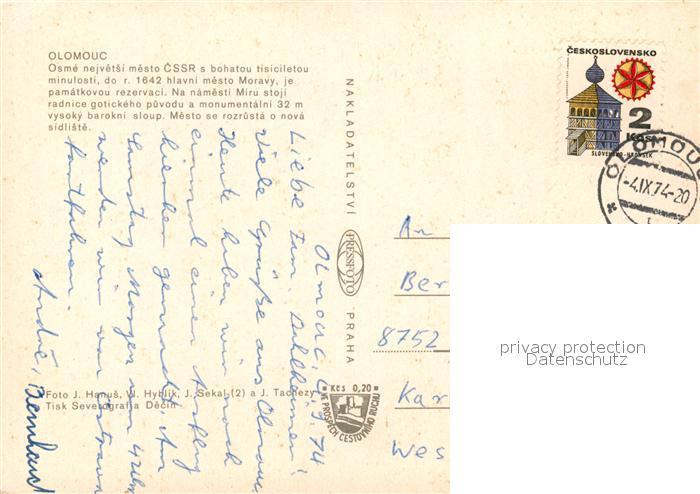 OLOMOUC
Osmé největší město ČSSR s bohatou tisíciletou
minulostí, do r. 1642 hlavní město Moravy, je
památkovou rezervací. Na náměstí Míru stojí
radnice gotického původu a monumentální 32 m
vysoký barokní sloup. Město se rozrůstá o nová
sídliště.
Olmouc, 4.9.74
Liebe Fam.
Viele Grüße aus Olmouc.
Heute haben wir noch
einmal einen Ausflug
hierher gemacht. Am
Samstag Morgen um 4 Uhr
werden wir von Ostrava
fortfahren.
André, Bernhard
Foto J. Hanuš, V. Hyblík, J. Sekal (2) a J. Tachezy
Tisk Severografia Děčín
NAKLADATELSTVÍ
PRESSFOTO
PRAHA
Kčs 0,20
VE PROSPĚCH CESTOVNÍHO RUCHU
ČESKOSLOVENSKO
2
Kčs
SLOVENSKO-HRONSEK
OLOMOUC
-4.IX.74-20
1
An
Ber
8752
Kar
Wes
privacy protection
Datenschutz